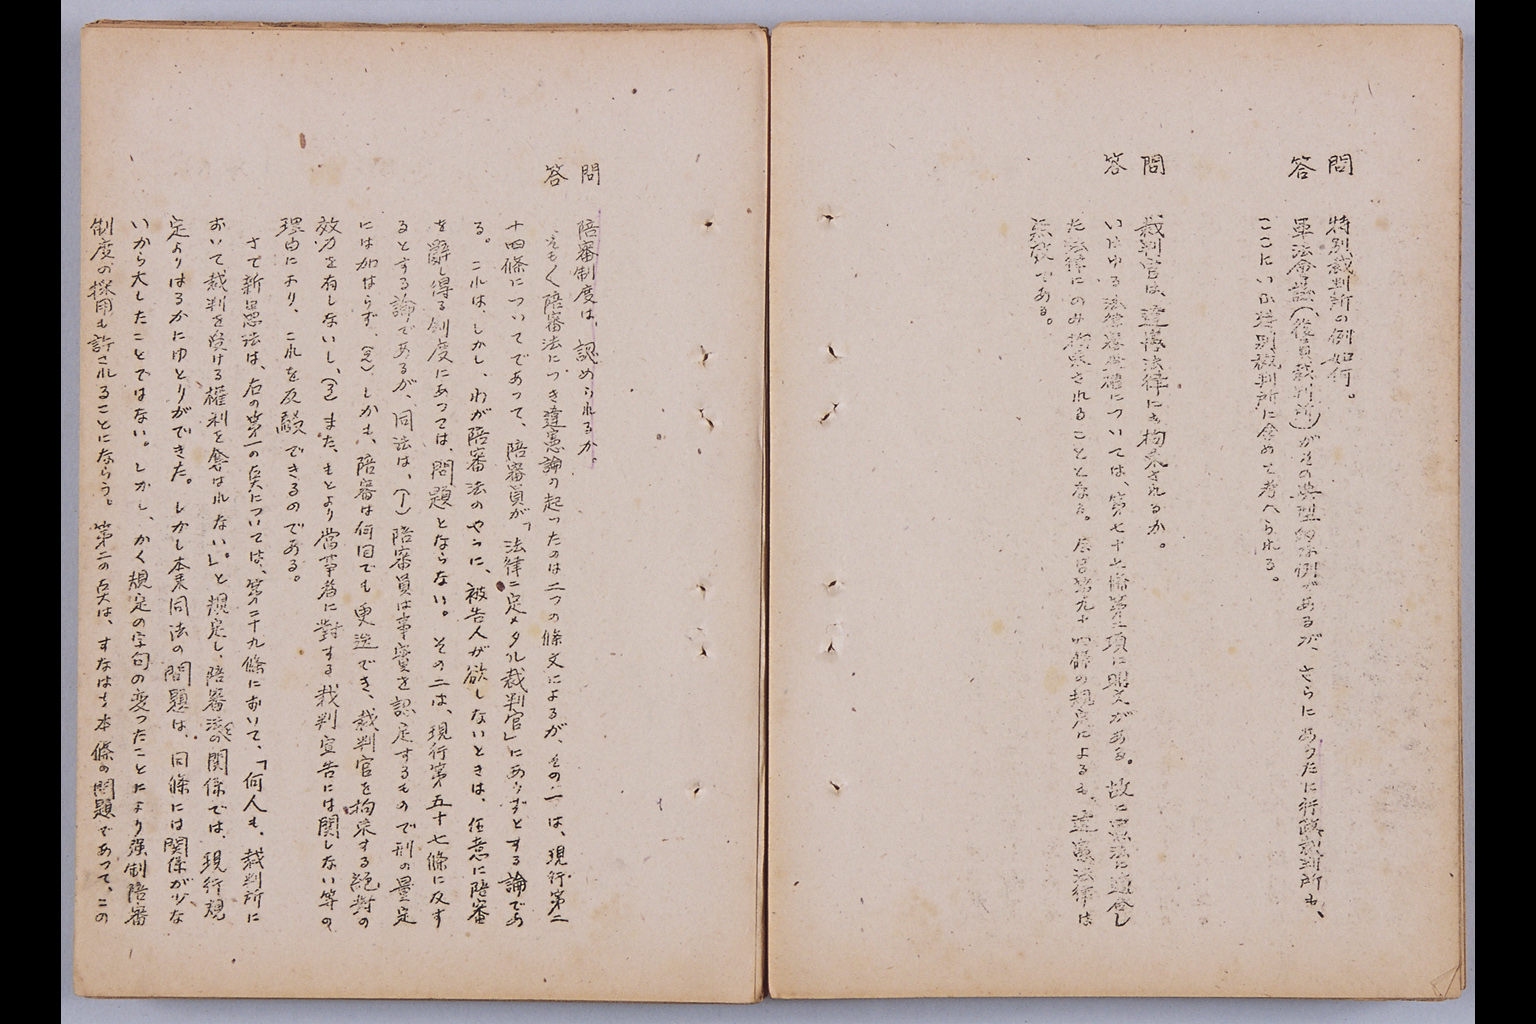 問 特別裁判所の例如何。
答 軍法會議(復員裁判所)がその典型的な例であるが、さらにあらたに行政裁判所も、
ここにいふ特別裁判所に含めて考へられる。
問 裁判官は、違憲法律にも拘束されるか。
答 いはゆる法律審査權については、第七十七條第二項に明文がある。故に憲法に適合し
た法律にのみ拘束されることとなる。尚第九十四條の規定によるも、違憲法律は
無效である。
問 陪審制度は、認められるか。
答 そもそも陪審法につき違憲論の起つたのは二つの條文によるが、その一は、現行第二
十四條についてであつて、陪審員が「法律ニ定メタル裁判官」にあらずとする論であ
る。これは、しかし、わが陪審法のやうに、被告人が欲しないときは、任意に陪審
を辭し得る制度にあつては、問題とならない。その二は、現行第五十七條に反す
るとする論であるが、同法は、(1)陪審員は事實を認定するもので刑の量定
には加はらず、(2)しかも、陪審は何回でも更迭でき、裁判官を拘束する絶對の
效力を有しないし、(3)また、もとより當事者に對する裁判宣告には關しない等の
理由により、これを反駁できるのである。
さて新憲法は、右の第一の点については、第二十九條において、「何人も、裁判所に
おいて裁判を受ける權利を奪はれない。」と規定し、陪審法の關係では、現行規
定よりはるかにゆとりができた。しかし本來同法の問題は、同條には關係が少な
いから大したことではない。しかし、かく規定の字句の変つたことにより强制陪審
制度の採用も許されることにならう。第二の点は、すなはち本條の問題であつて、この